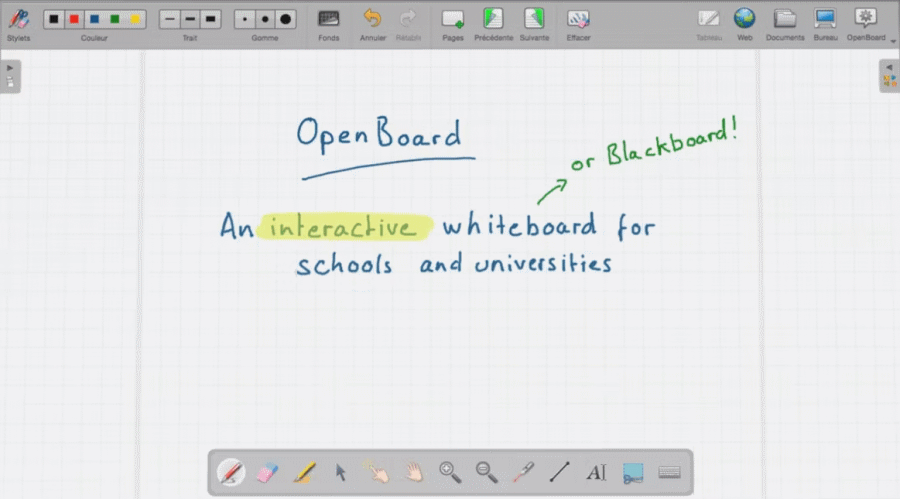 Stylets Couleur Trait Gomme Fonds Annuler Rétablir Pages Précédente Suivante Effacer Tableau Web Documents Bureau OpenBoard
OpenBoard
or Blackboard!
An interactive whiteboard for
schools and universities
AI